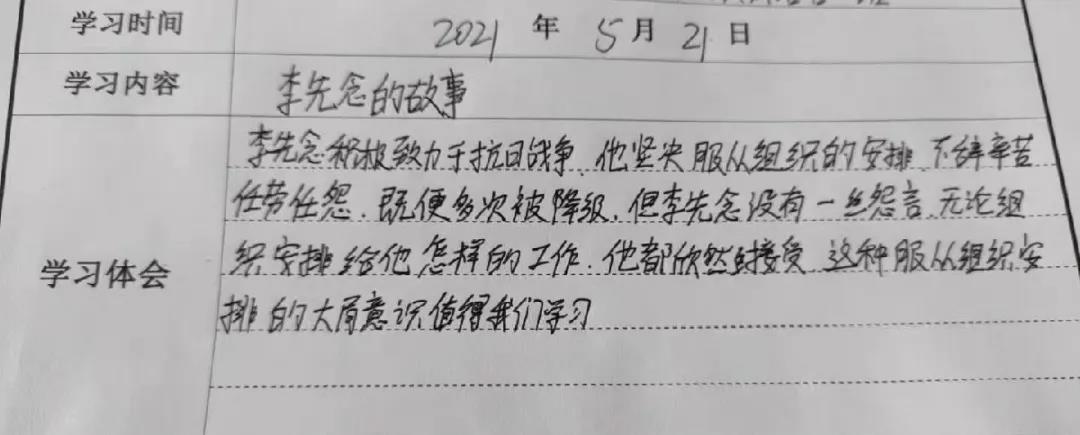 学习时间 2021 年 5 月 21 日
学习内容 李先念的故事
学习体会
李先念积极致力于抗日战争、他坚决服从组织的安排、不辞辛苦
任劳任怨、既便多次被降级、但李先念没有一丝怨言、无论组
织安排给他怎样的工作、他都欣然接受、这种服从组织安
排的大局意识值得我们学习